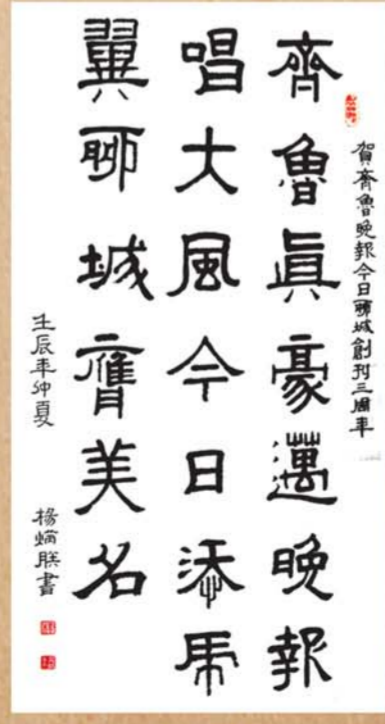 賀齊魯晚報今日聊城創刊三周年
齊魯眞豪邁晚報
唱大風今日添虎
翼聊城膺美名
壬辰年仲夏
楊 書